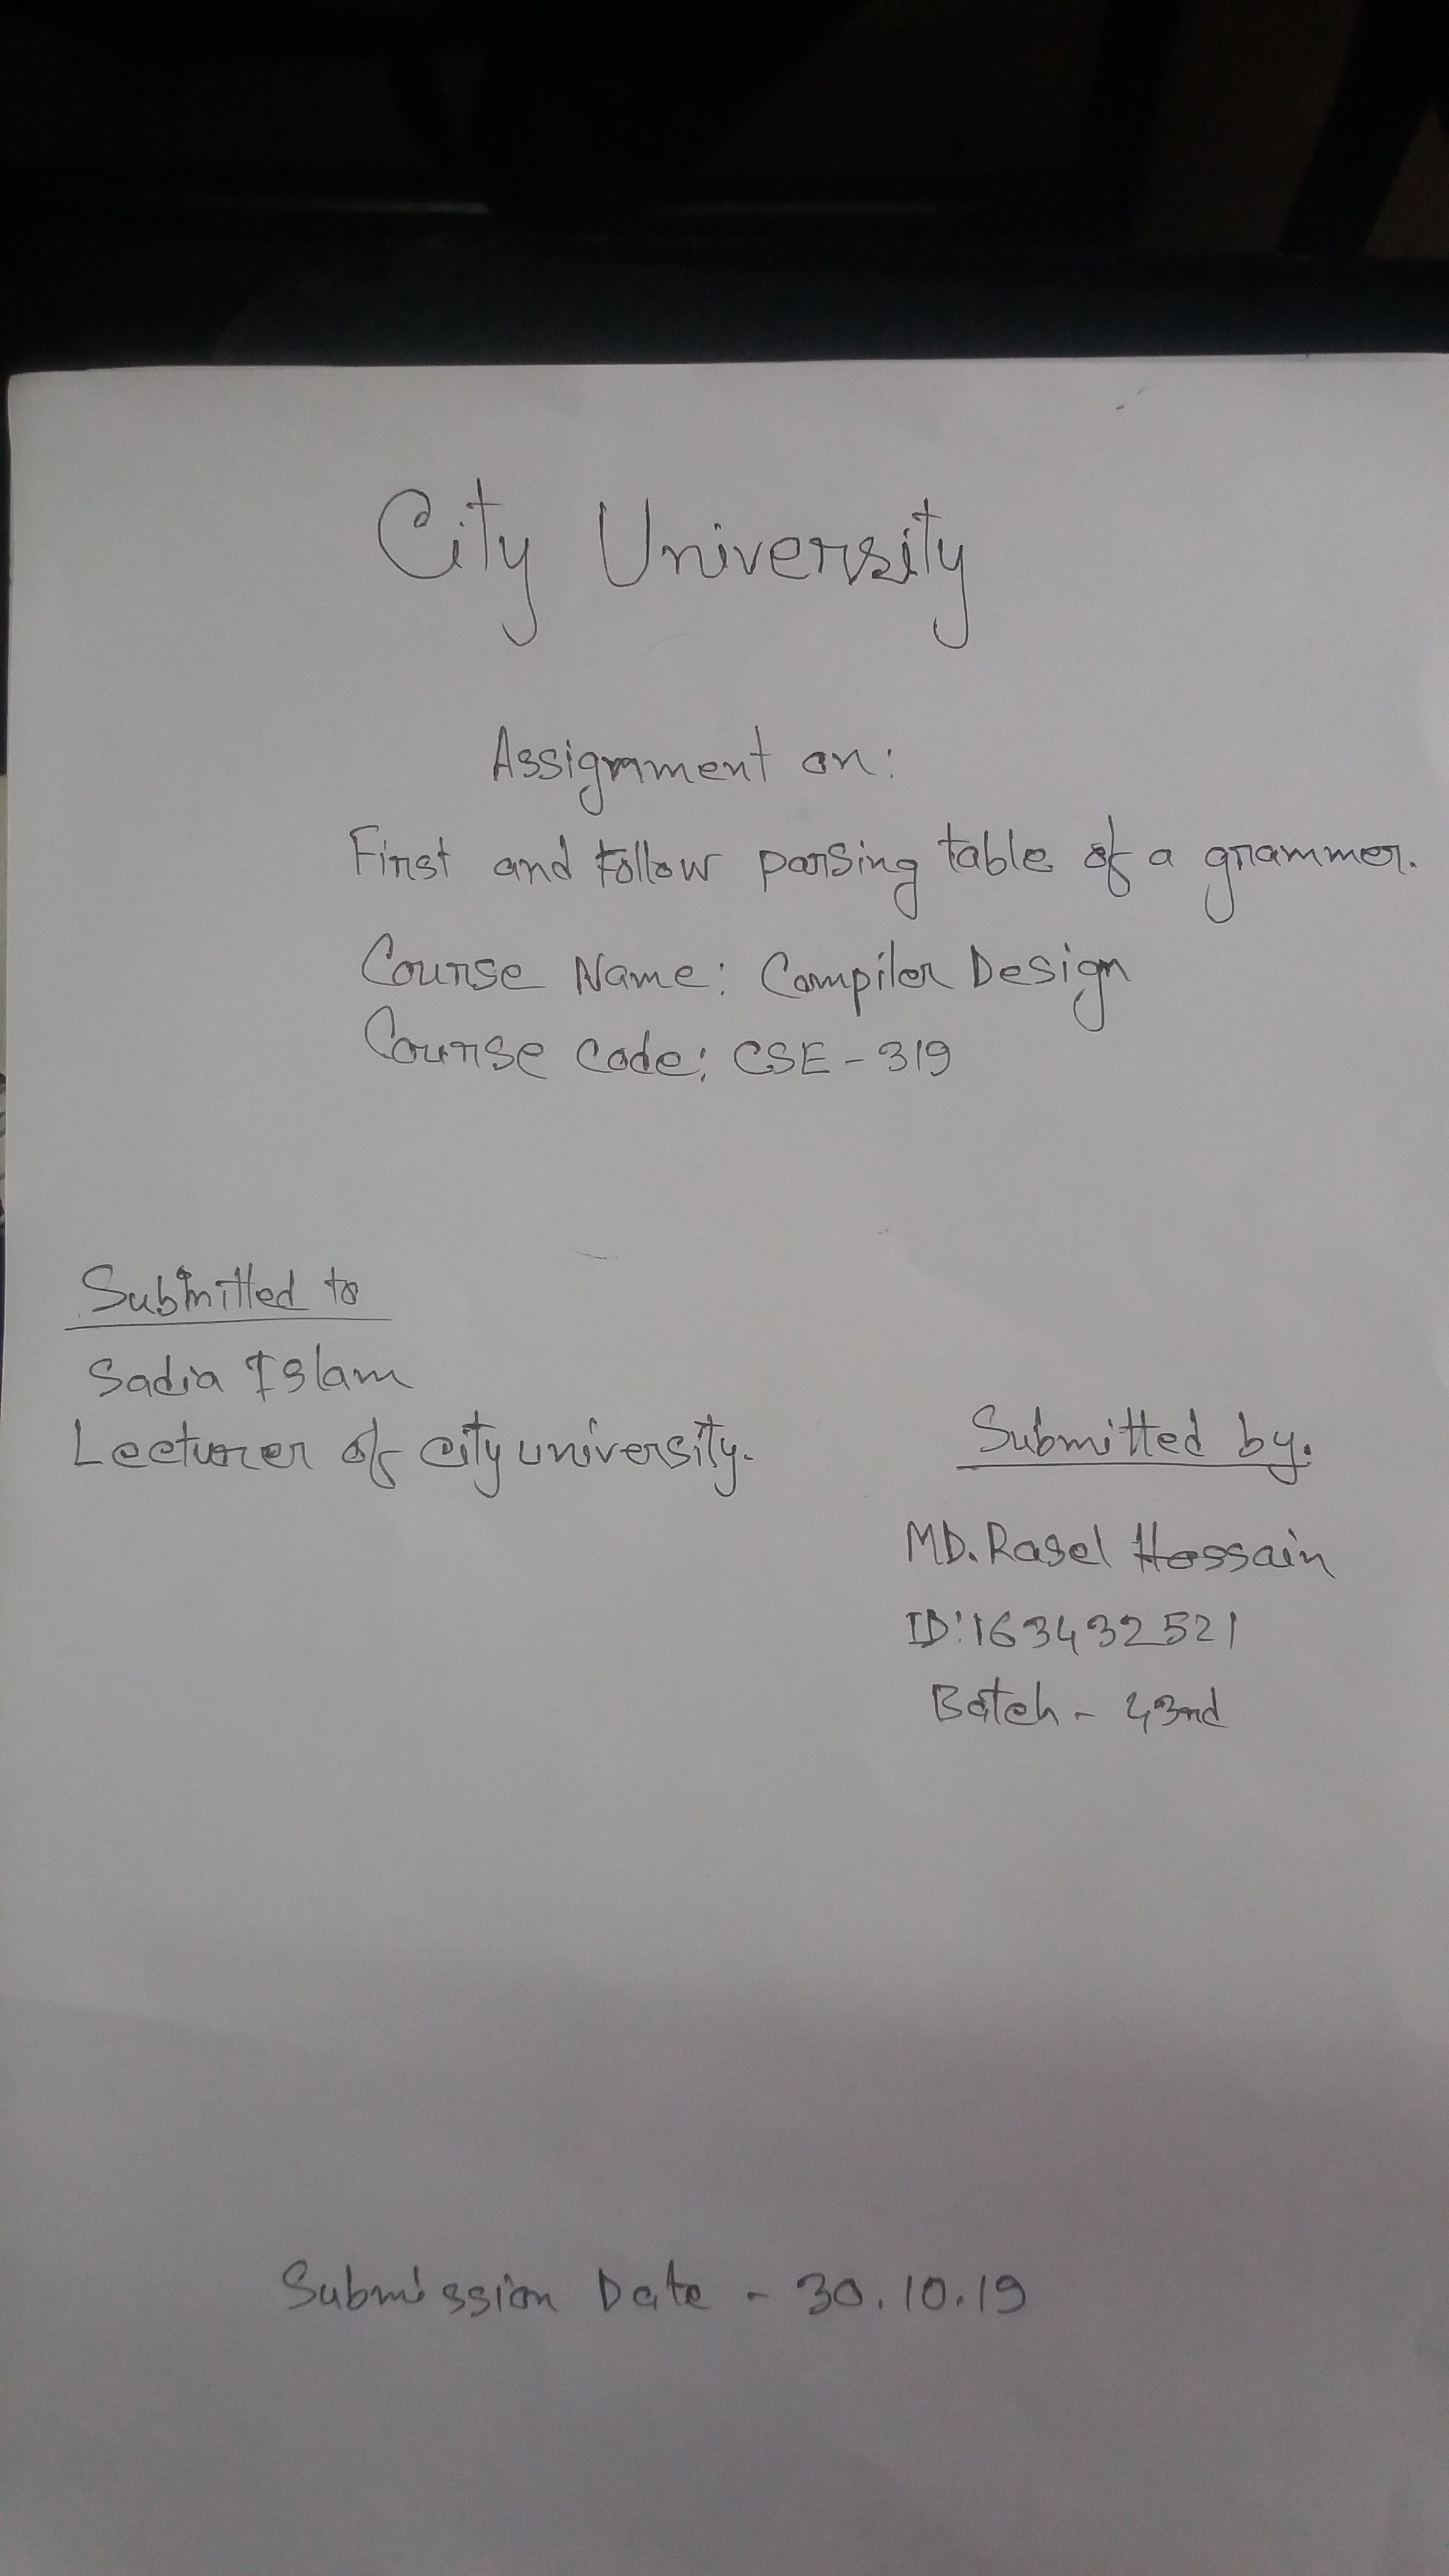 City University
Assignment on:
First and follow parsing table of a grammer.
Course Name: Compiler Design
Course Code: CSE-319
Submitted to
Sadia Islam
Lecturer of city university.
Submitted by.
MD. Rasel Hossain
ID: 163432521
Batch - 43nd
Submission Date - 30.10.19